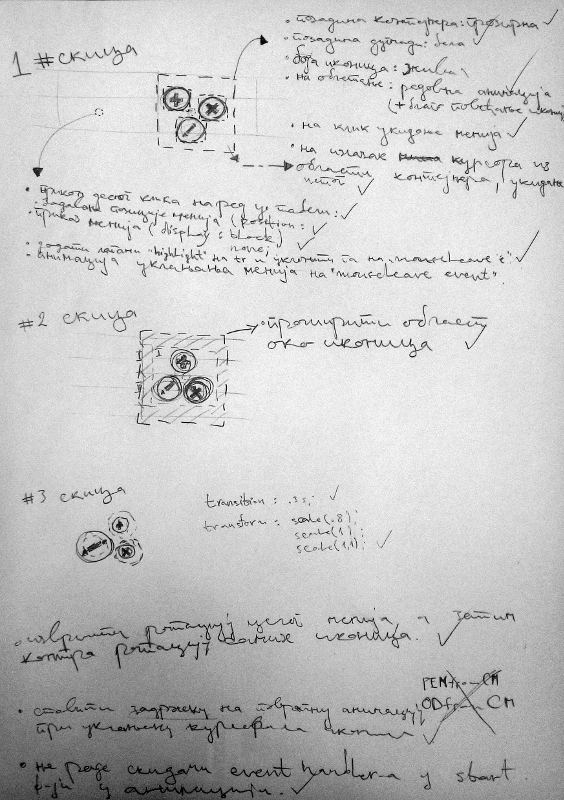 1 #скица
• позадина контејнера: прозирна ✓
• позадина дугмади: бела ✓
• боја иконица:
• на : редовна анимација
(+ благо повећање
• на клик укидање менија ✓
• на излазак курсора из
области контејнера, укидање
✓
• приказ десног клика на ред у табели: ✓
- задавање позиције менија (position: ✓
- приказ менија (display: block) ✓
none; ✓
- задати класу "highlight" на tr и уклонити га на "mouseleave" ✓
- анимација уклањања менија на "mouseleave event".
#2 скица
• проширити област
око иконица ✓
#3 скица
transition: .3s; ✓
transform: scale(.8);
scale(1);
scale(1,1); ✓
• извршити ротацију целог менија, а затим
контра ротацију самих иконица. ✓
• ставити задршку на повратну анимацију
при уклањању курсора ✓
CM
CM
• не раде скидачи event handler-а у start
ф-ји у анимацији. ✓